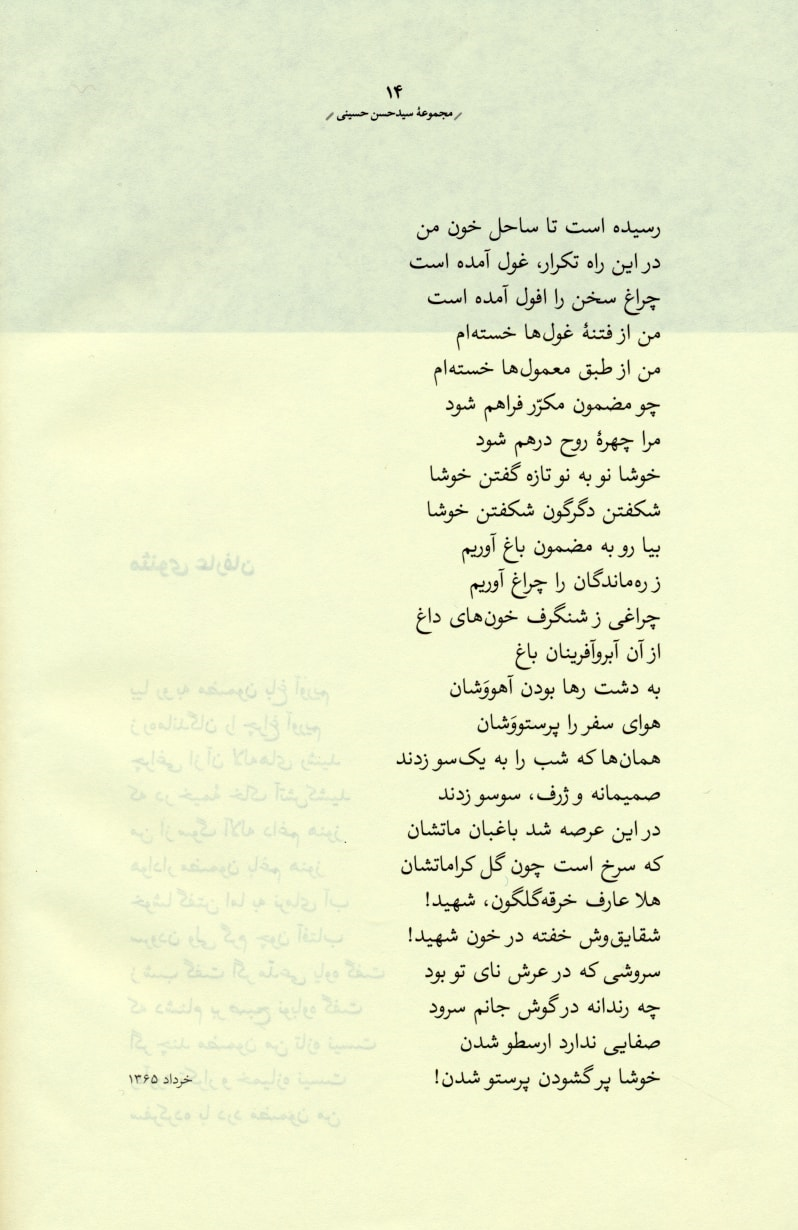 ۱۴
/ مجموعهٔ سیدحسن حسینی /
رسیده است تا ساحل خون من
در این راه تکرار، غول آمده است
چراغ سخن را افول آمده است
من از فتنهٔ غول‌ها خسته‌ام
من از طبق معمول‌ها خسته‌ام
چو مضمون مکرّر فراهم شود
مرا چهرهٔ روح درهم شود
خوشا نو به نو تازه گفتن خوشا
شکفتن دگرگون شکفتن خوشا
بیا رو به مضمون باغ آوریم
ز ره‌ماندگان را چراغ آوریم
چراغی ز شنگرف خون‌های داغ
از آن آبروآفرینان باغ
به دشت رها بودن آهووَشان
هوای سفر را پرستووَشان
همان‌ها که شب را به یک‌سو زدند
صمیمانه و ژرف، سوسو زدند
در این عرصه شد باغبان ماتشان
که سرخ است چون گل کراماتشان
هلا عارف خرقه‌گلگون، شهید!
شقایق‌وش خفته در خون شهید!
سروشی که در عرش نای تو بود
چه رندانه در گوش جانم سرود
صفایی ندارد ارسطو شدن
خوشا پر گشودن پرستو شدن!
خرداد ۱۳۶۵